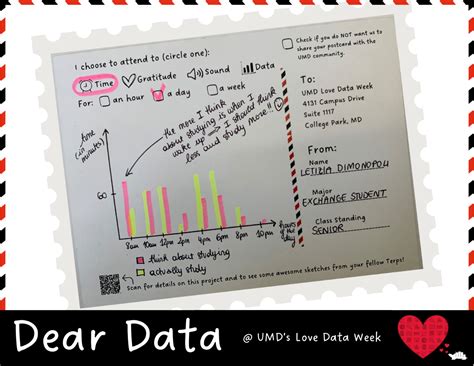 I choose to attend to (circle one):
Time Gratitude Sound Data
For: an hour a day a week
Check if you do NOT want us to
share your postcard with the
UMD community.
To:
UMD Love Data Week
4131 Campus Drive
Suite 1117
College Park, MD
From:
Name
LETIZIA DIMONOPOLI
Major
EXCHANGE STUDENT
Class Standing
SENIOR
time
(in
minutes)
60
The more I think
about studying is when I
wake up → I should think
less and study more!!
8am 10am 12pm 2pm 4pm 6pm 8pm 10pm
hours of
the day
think about studying
actually study
Scan for details on this project and to see some awesome sketches from your fellow Terps!
Dear Data
@ UMD's Love Data Week